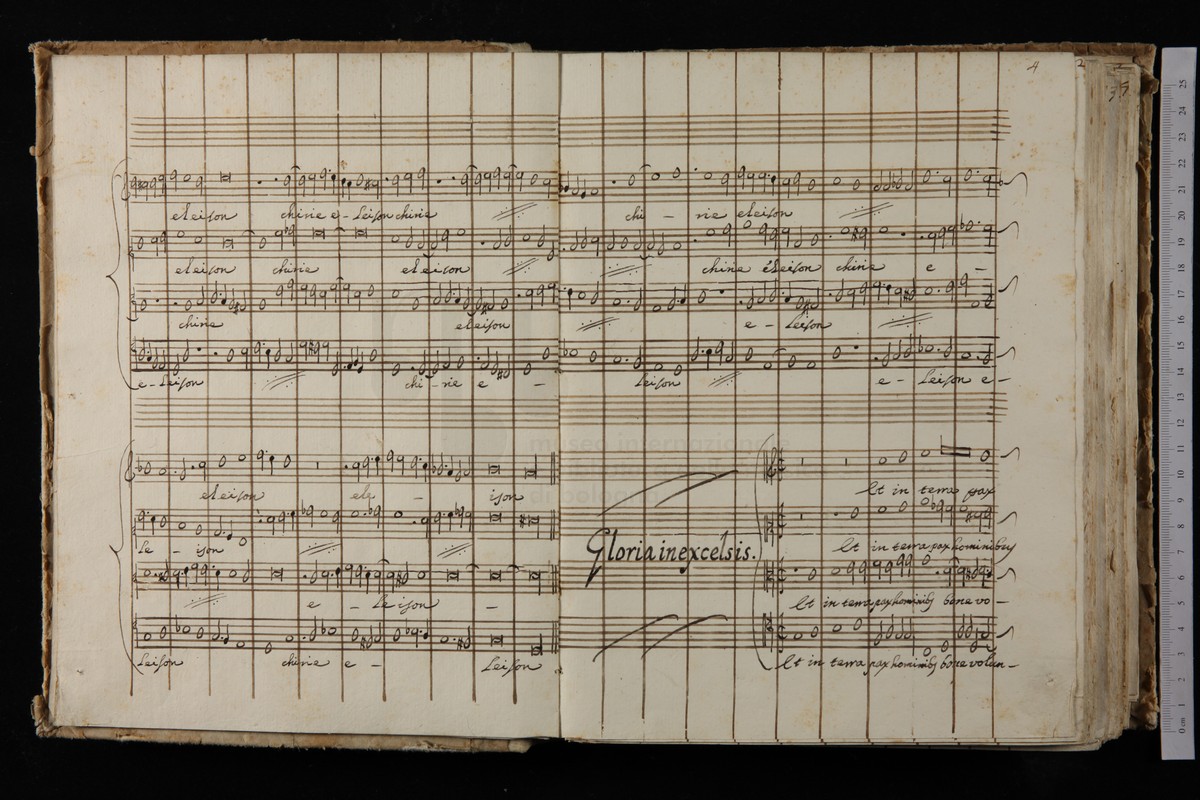 4
eleison chirie e-leison chirie chi - rie eleison
eleison chirie eleison chirie eleison chirie e -
chirie eleison e - leison
e-leison chi-rie e - leison e - leison e -
eleison ele - ison Et in terra pax
le - ison Et in terra pax hominibus
Gloria in excelsis.
e - leison - Et in terra pax hominibus bone vo -
leison chirie e - leison Et in terra pax hominibus bone volun -
museo internazionale
di bologna
0 cm 1 2 3 4 5 6 7 8 9 10 11 12 13 14 15 16 17 18 19 20 21 22 23 24 25